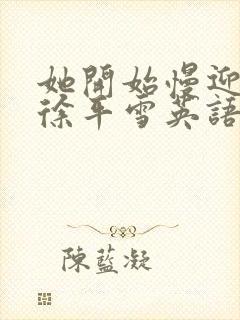 她開始慢迎
徐平雪英語
陳藍凝